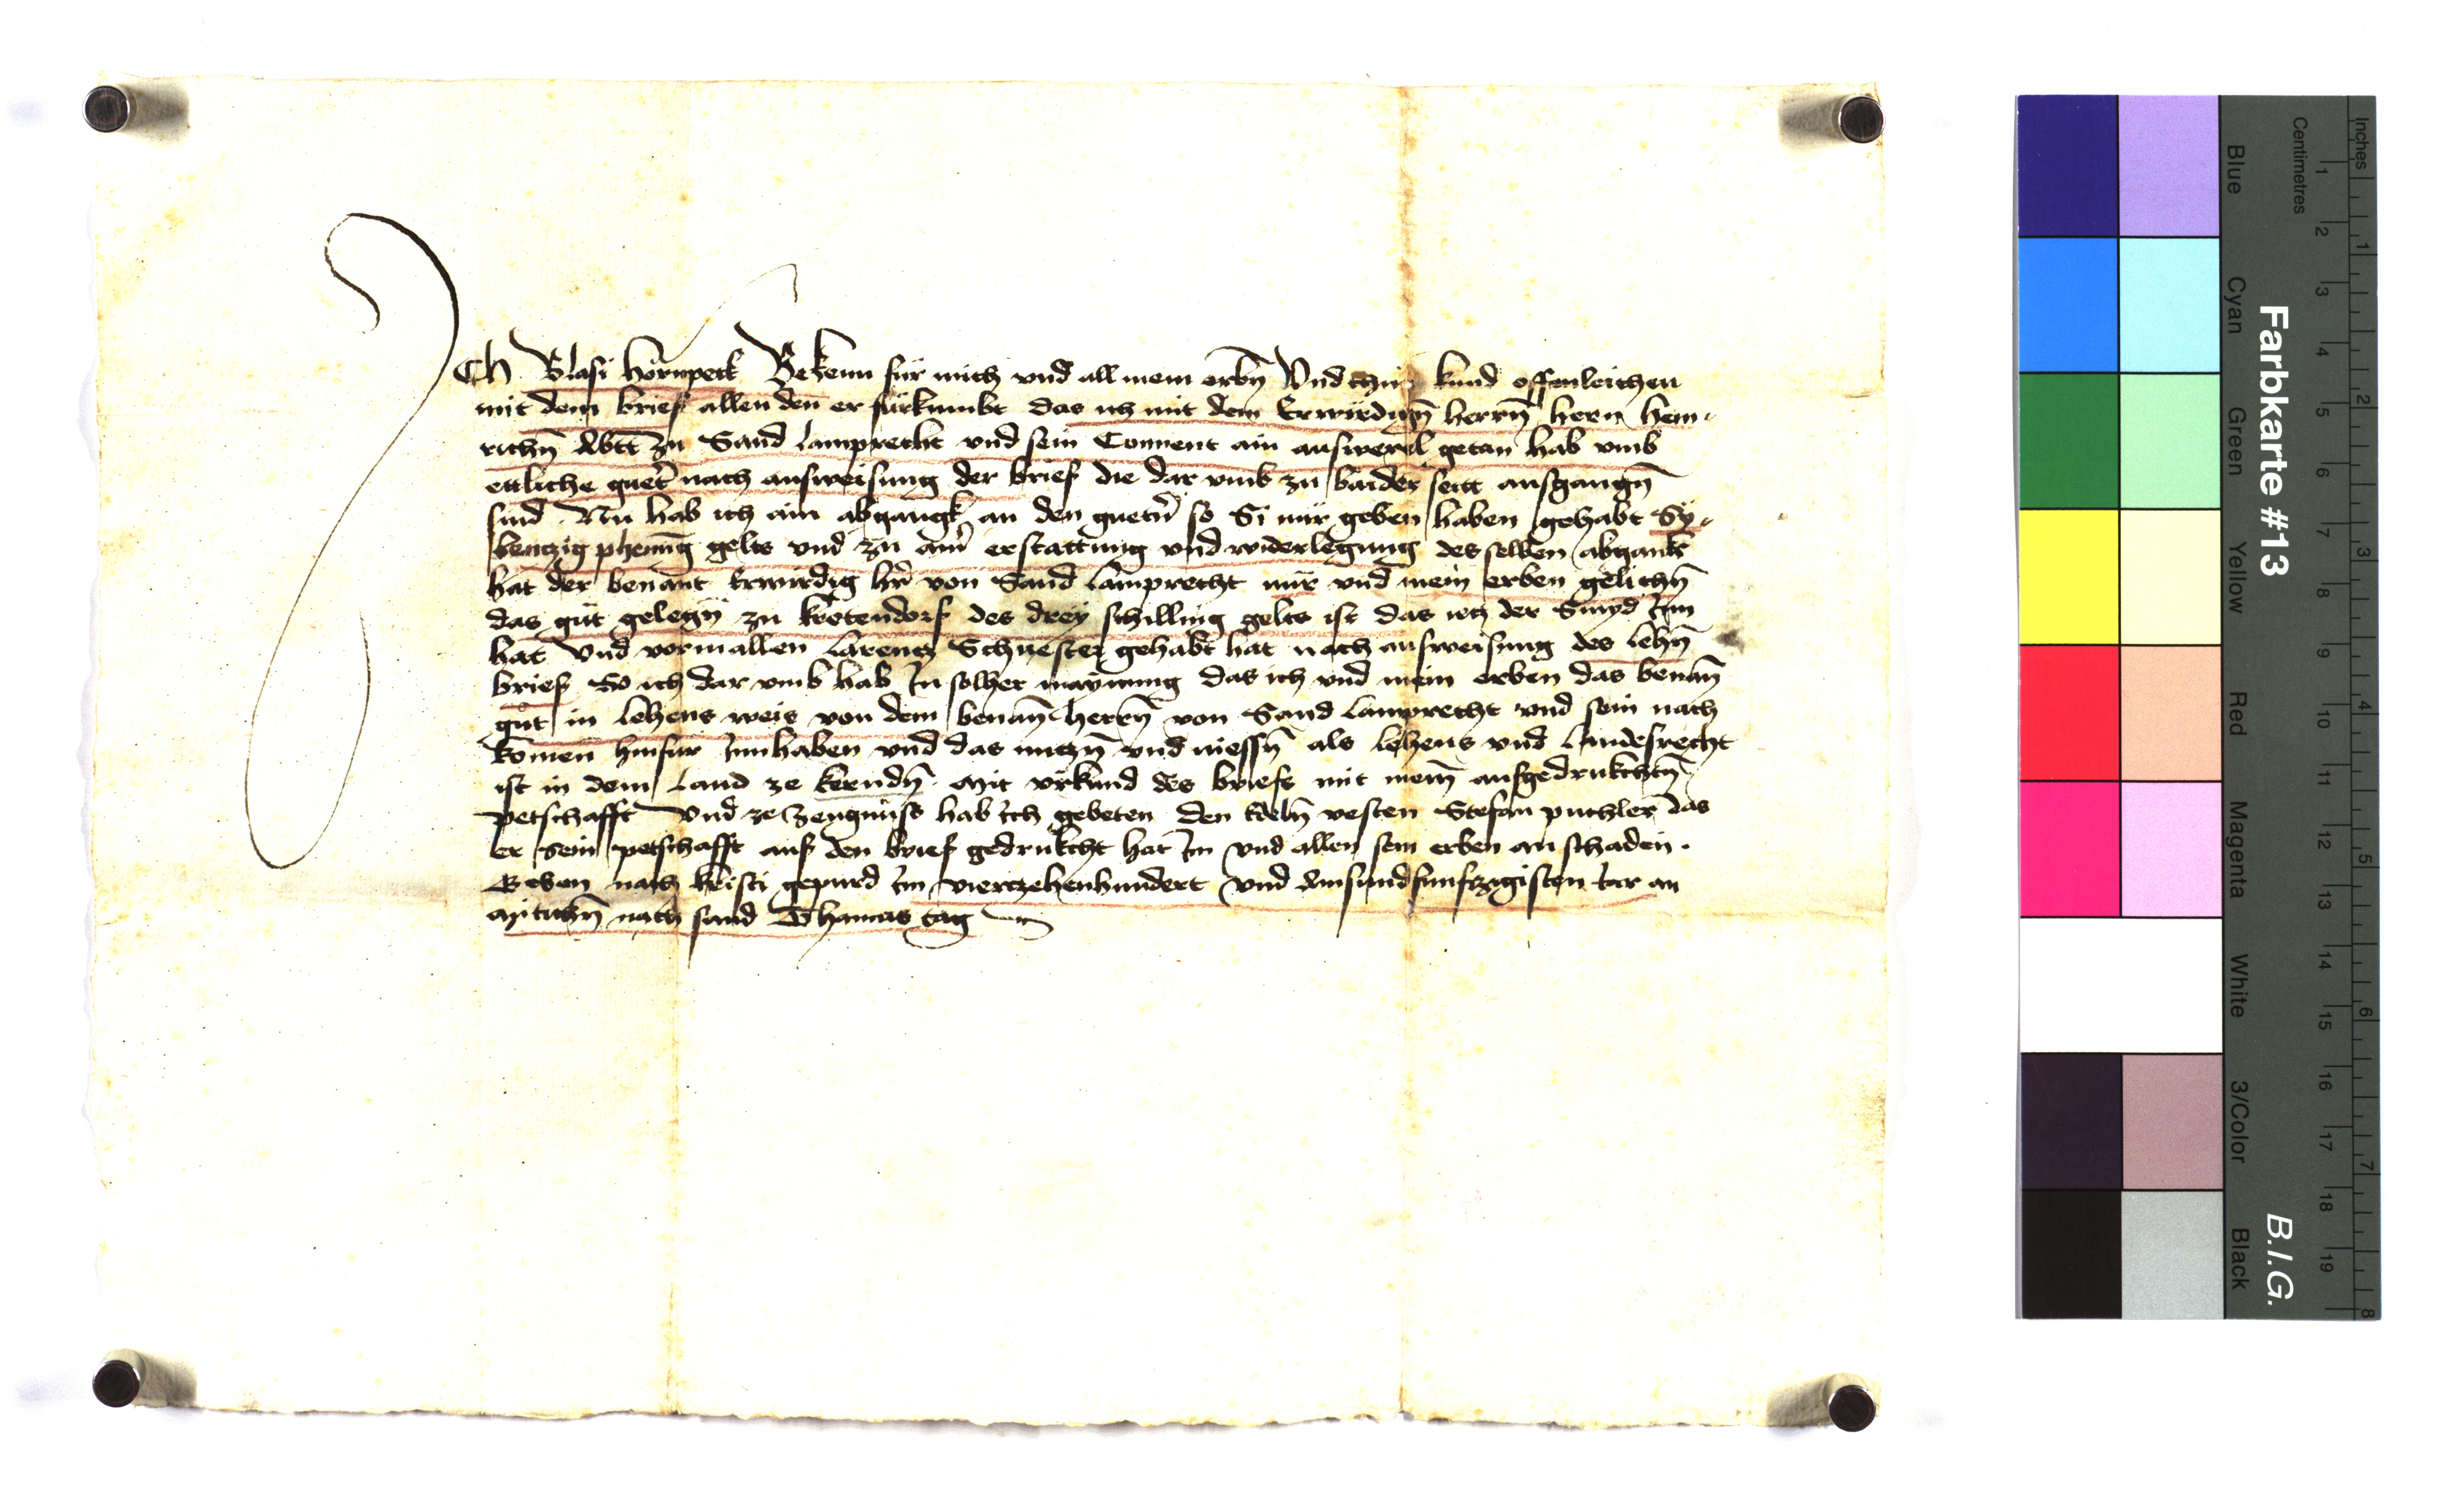 Ich Blasi hornpeck Bekenn für mich vnd all mein erbn̄ Vnd tzun kund offenleichen
mit dem brief allen den er fürkumbt das ich mit dem Erwirdign̄ herrn̄ hern hein-
richn̄ Abtt zu Sand Lamprecht vnd sein Conuent ain auswexl getan hab vmb
ettliche guet̄ nach ausweisung der brief die dar vmb zu baider seitt ausgangn̄
sind Nu hab ich ain abgangk an den guetn̄ so Si mir geben haben gehabt Sy-
bentzig phenn̄g gelts vnd zu ain̄ erstattung vnd widerlegung desselben abgank
hat der benant Erwirdig hr̄ von Sand Lamprecht mir vnd mein erben gelichn̄
das güt gelegn̄ zu kretendorf des drey schilling gelts ist das ietz der Smyd Inn
hat Vnd vormallen Larentz Schuester gehabt hat nach ausweisung des lehn̄
brief So ich dar vmb hab In solher maynung das ich vnd mein erben das benan̄
gut in lehens weis von dem benan̄ herrn̄ von Sand Lamprecht vnd sein nach
komen hinfür Innhaben vnd das nutzn̄ vnd niessn̄ als lehens vnd Landesrecht
ist in dem Land ze kerndn̄ Mit vrkund des briefs mit mein̄ aufgedrukchtn̄
petschafft Vnd ze zeugnüss hab ich gebeten den Edeln̄ vesten Stefan puchler das
er sein petschafft auf den brief gedrukcht hat Im vnd allen sein erben an schaden.
Geben nach kristi gepurd Im viertzehenhundert Vnd Ainsundfunftzigisten iar an
Mitichn̄ nach sand Thamas tag
Farbkarte #13
B.I.G.
Inches
Centimetres
1 2 3 4 5 6 7 8 9 10 11 12 13 14 15 16 17 18 19
1 2 3 4 5 6 7 8
Blue
Cyan
Green
Yellow
Red
Magenta
White
3/Color
Black